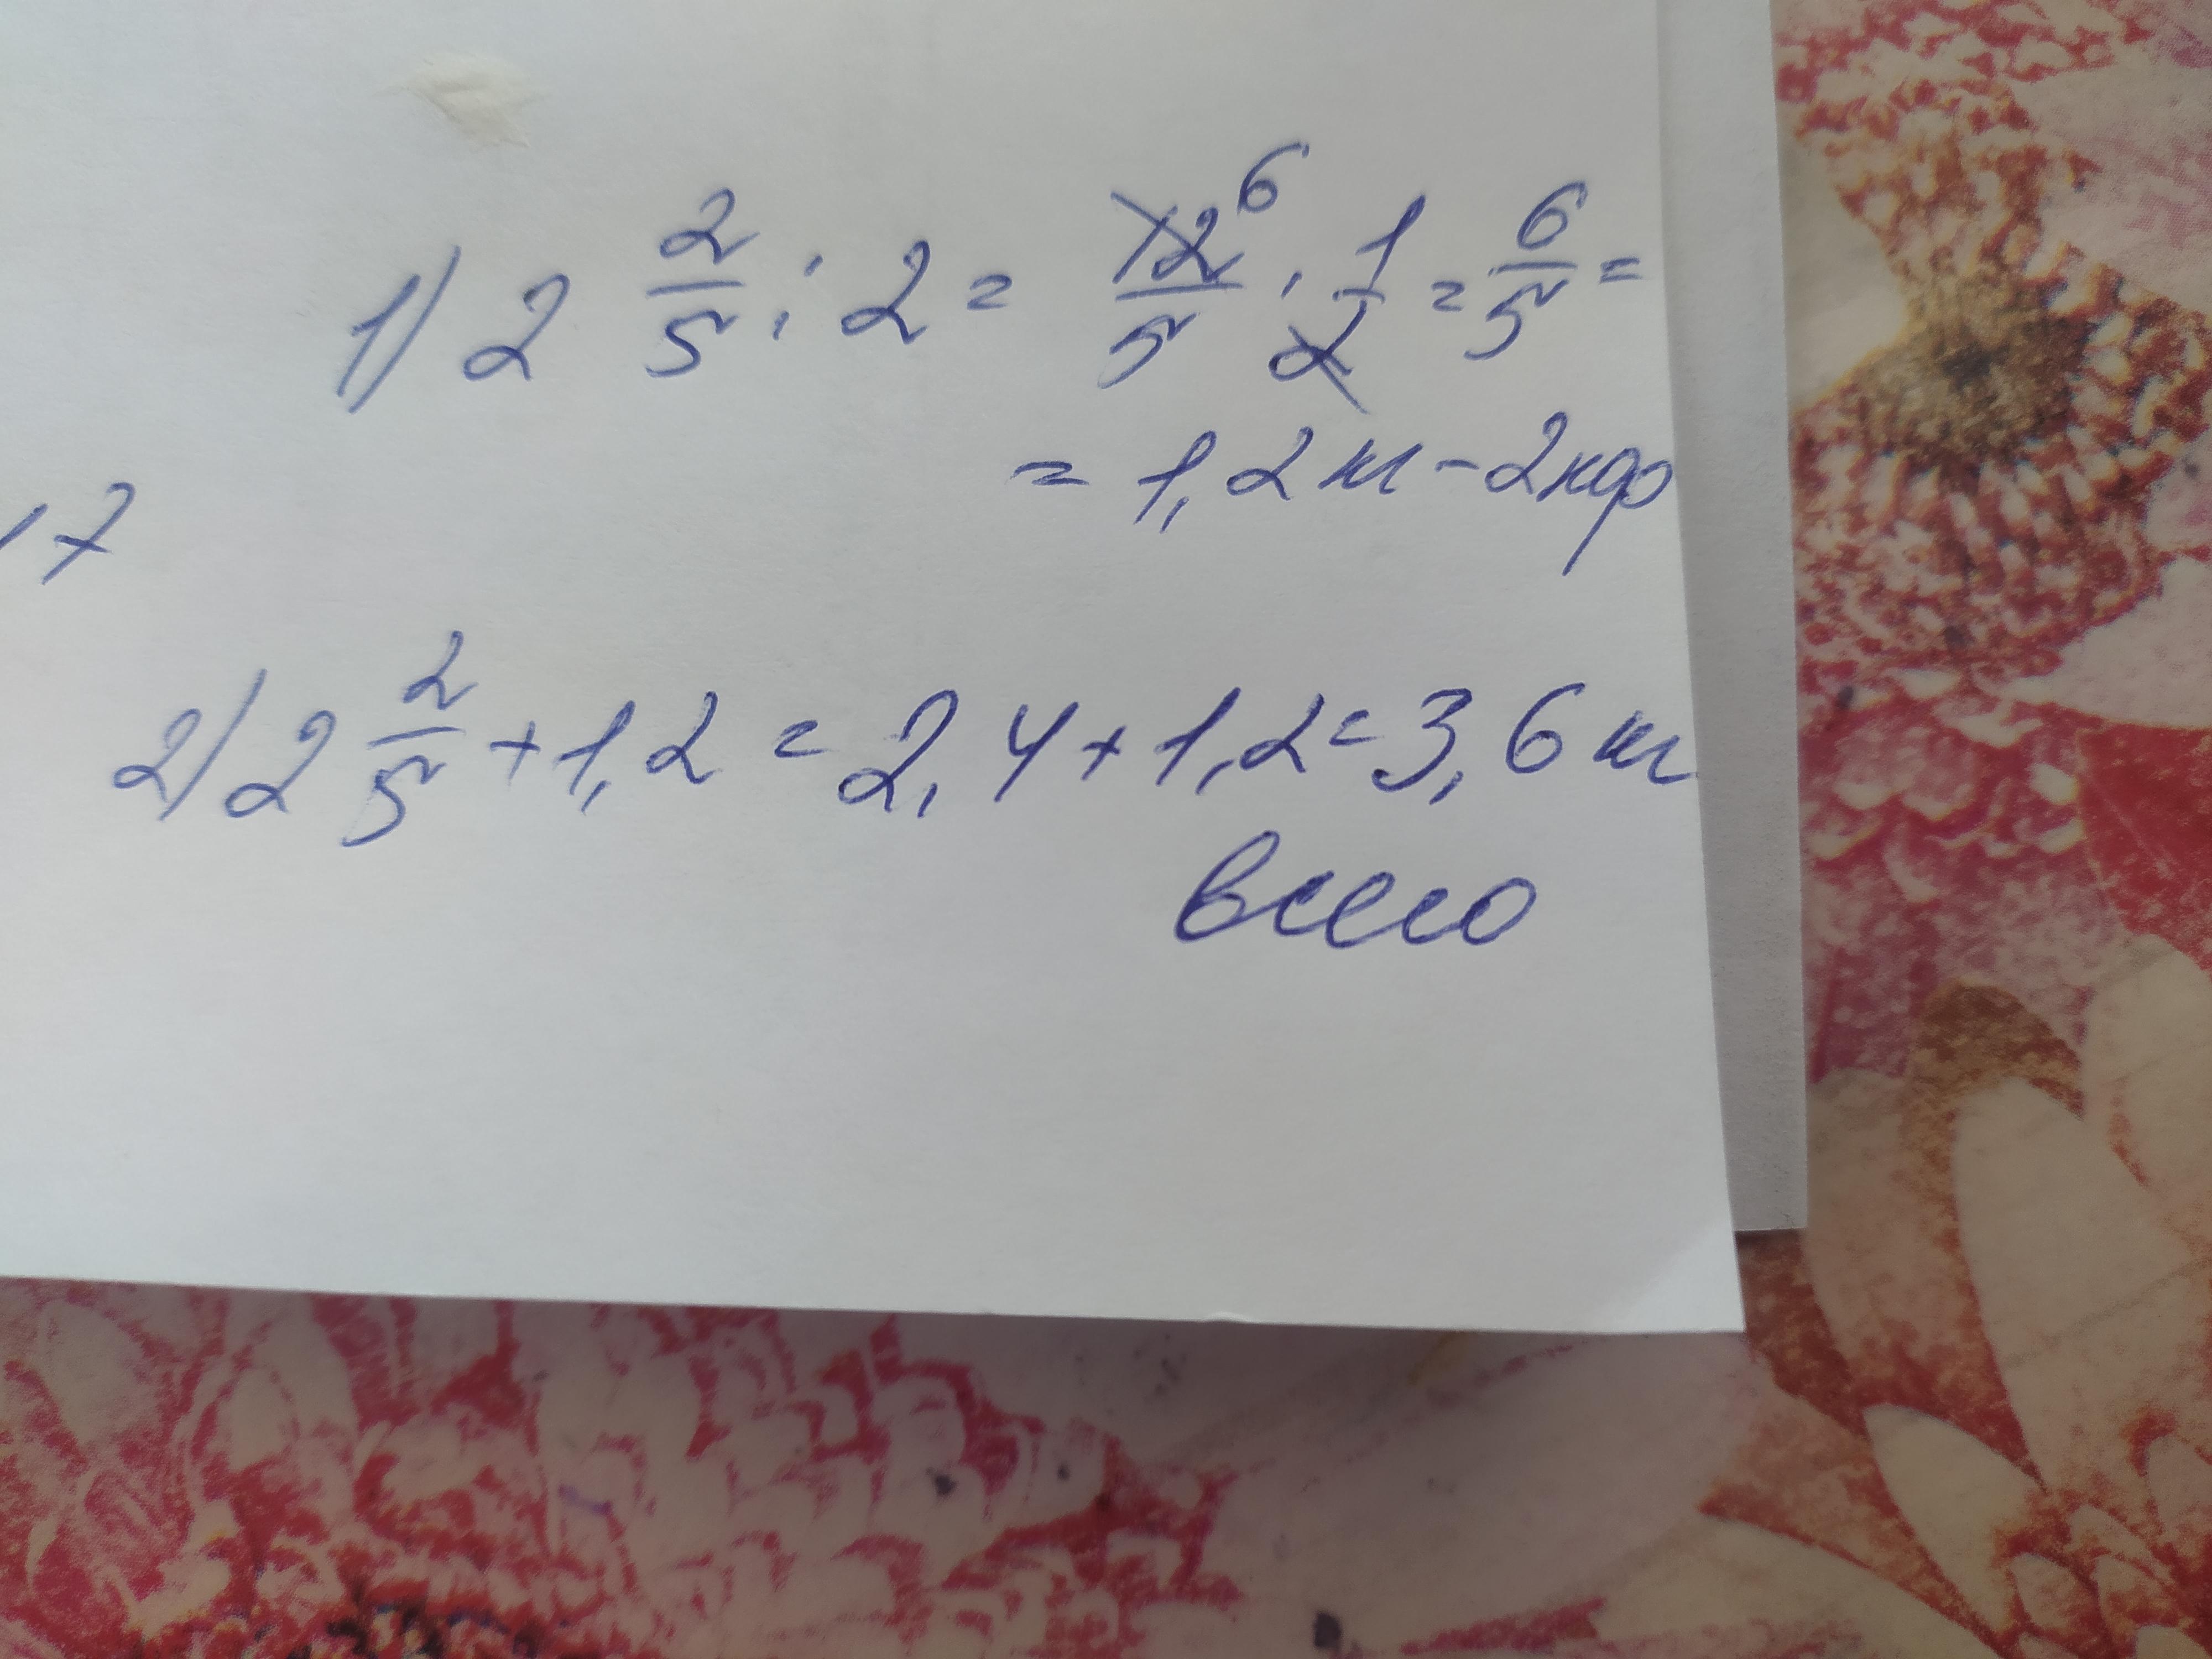 1) 2 2/5 : 2 = 12/5 6 · 1/2 = 6/5 =
= 1,2 м - 2 кор
, 7
2) 2 2/5 + 1,2 = 2,4 + 1,2 = 3,6 м
всего